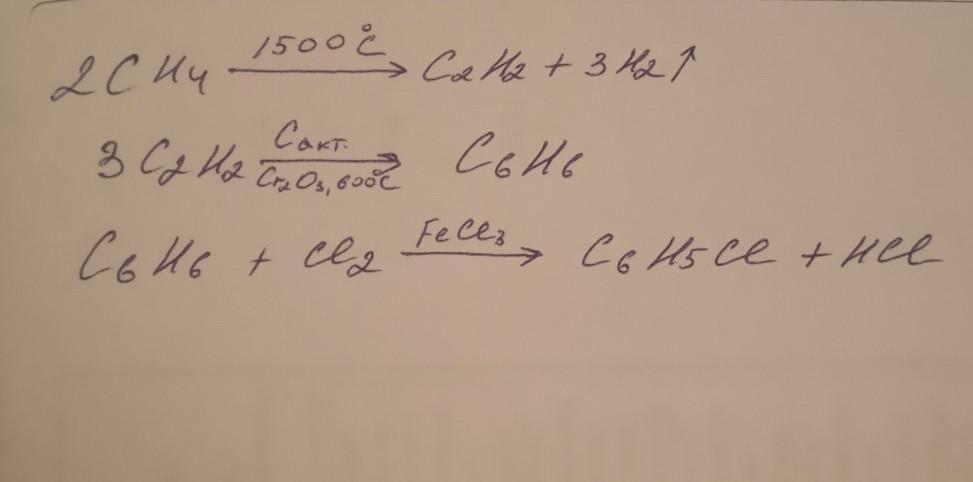 2CH₄ —1500°C→ C₂H₂ + 3H₂↑
3C₂H₂ —Cакт. / Cr₂O₃, 600°C→ C₆H₆
C₆H₆ + Cl₂ —FeCl₃→ C₆H₅Cl + HCl